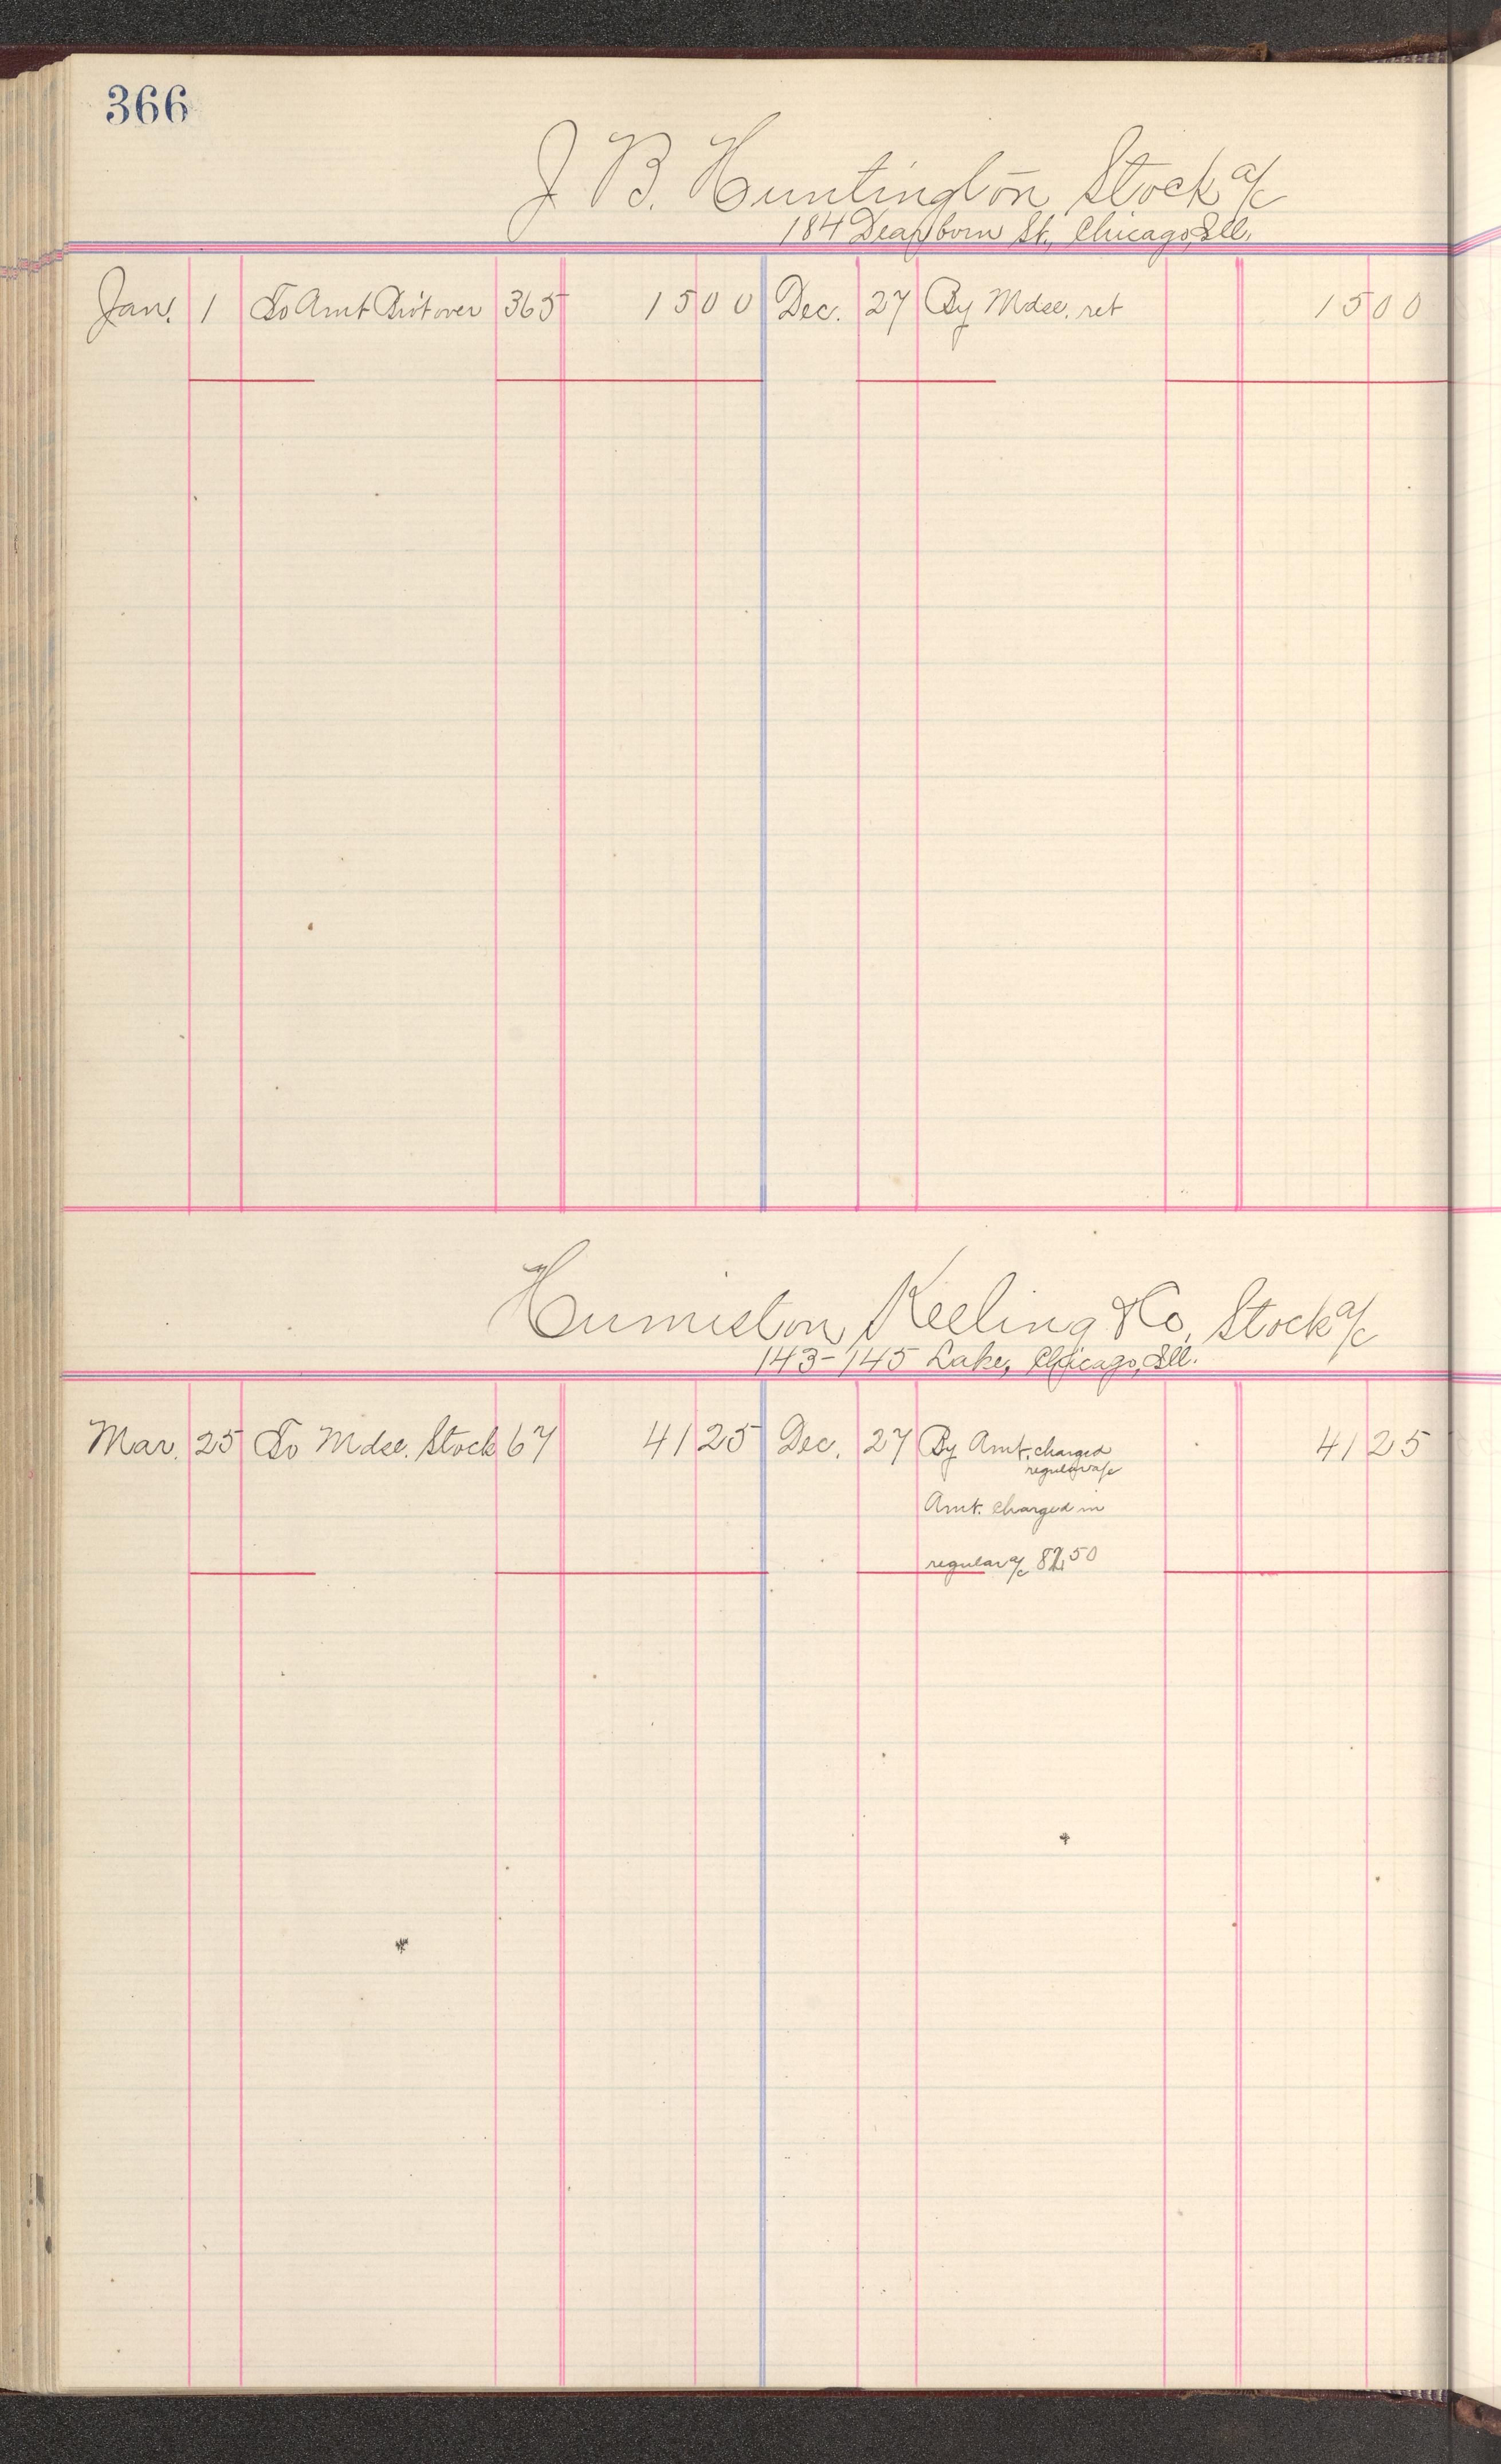 366
J B. Huntington Stock a/c
184 Dearborn St., Chicago, Ill.
Jan. 1 To Amt Brot over 365 15 00 Dec. 27 By Mdse. ret 15 00
Humiston, Keeling & Co, Stock a/c
143-145 Lake, Chicago, Ill.
Mar. 25 To Mdse. Stock 67 41 25 Dec. 27 By Amt. charged 41 25
regular a/c
Amt. charged in
regular a/c 82 50